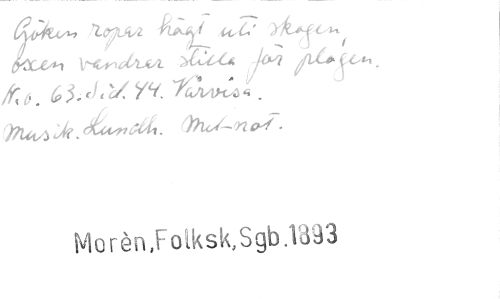 Göken ropar högt uti skogen,
oxen vandrar stilla för plogen.
N:o. 63. Sid. 44. Vårvisa.
Musik. Lundh. Met-not.
Morèn,Folksk,Sgb.1893